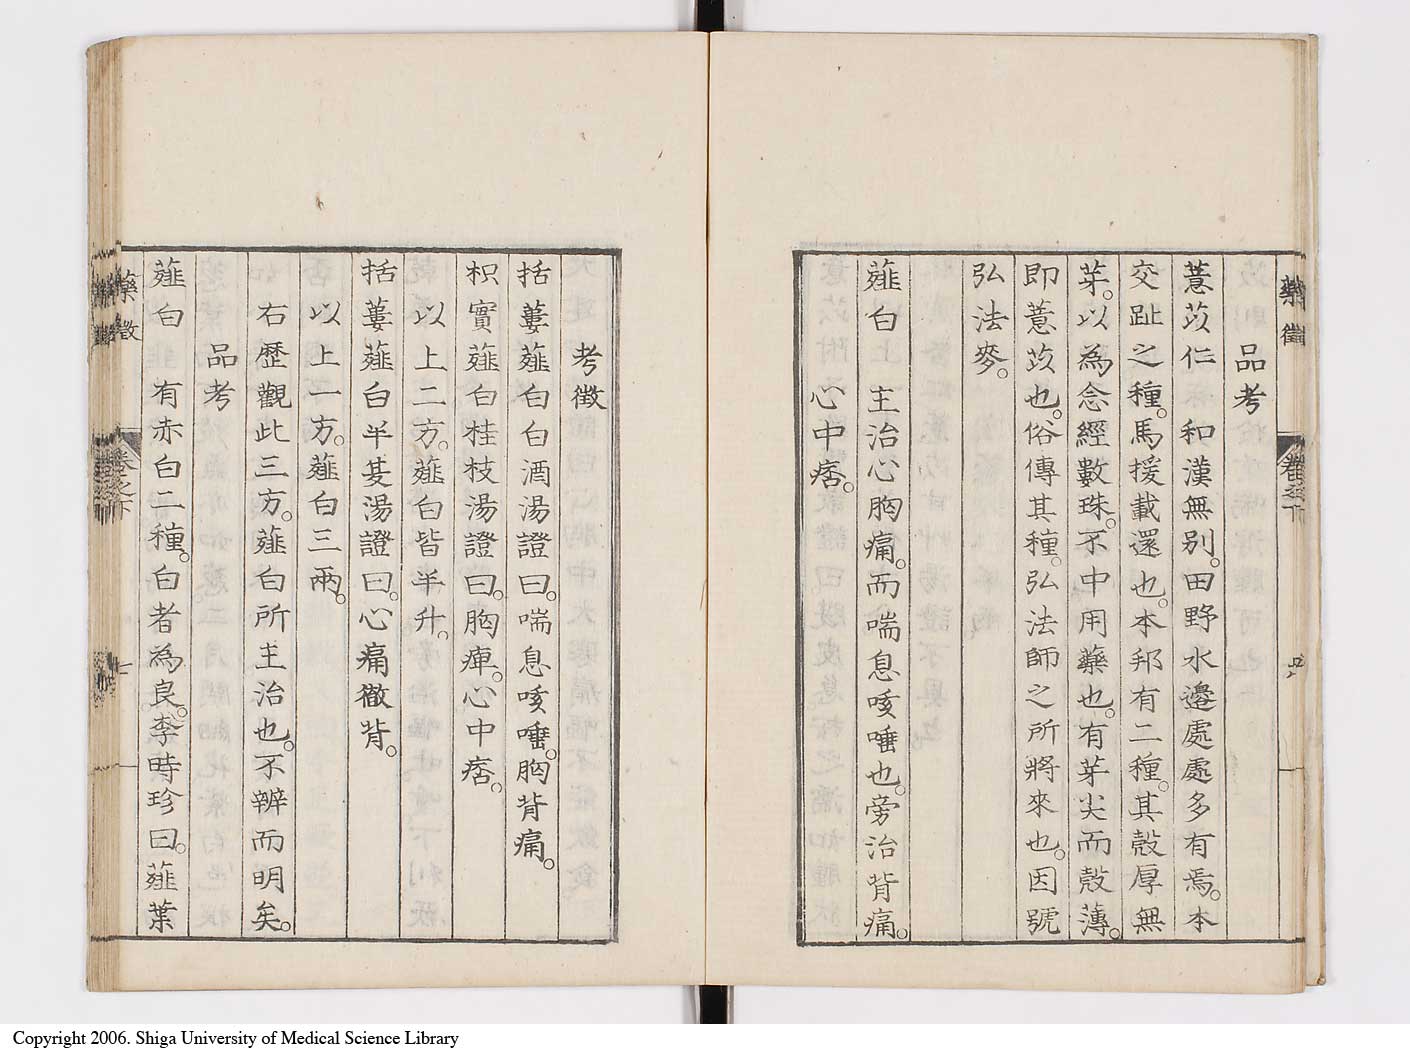 藥徵
卷之下
品考
薏苡仁 和漢無別。田野水邊處處多有焉。本
交趾之種。馬援載還也。本邦有二種。其殼厚無
芽。以為念經數珠。不中用藥也。有芽尖而殼薄。
即薏苡也。俗傳其種。弘法師之所將來也。因號
弘法麥。
薤白 主治心胸痛。而喘息咳唾也。旁治背痛。
心中痞。
考徵
括蔞薤白白酒湯證曰。喘息咳唾。胸背痛。
枳實薤白桂枝湯證曰。胸痺。心中痞。
以上二方。薤白皆半升。
括蔞薤白半夏湯證曰。心痛徹背。
以上一方。薤白三兩。
右歷觀此三方。薤白所主治也。不辨而明矣。
品考
薤白 有赤白二種。白者為良。李時珍曰。薤葉
藥徵
卷之下
七
Copyright 2006. Shiga University of Medical Science Library